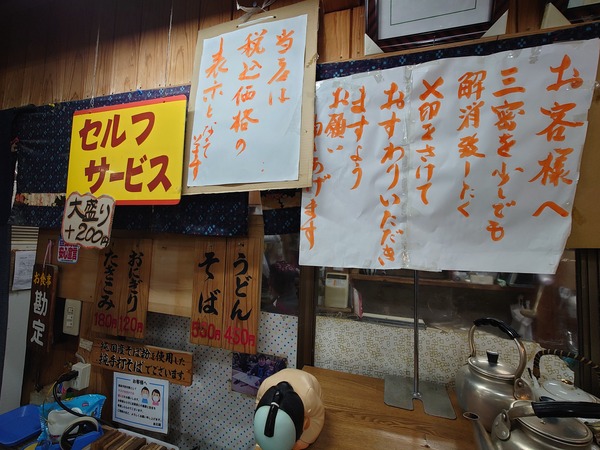 お客様へ
三密を少しでも
解消致したく
×印をさけて
おすわりいただき
ますよう
お願い
申しあげます
当店は
税込価格の
表示となって
います
セルフ
サービス
大盛り
+200円
うどん
450円
そば
550円
おにぎり
120円
たきこみ
180円
お食事
勘定
純国産そば粉を使用した
純手打そばでございます。
お客様へ